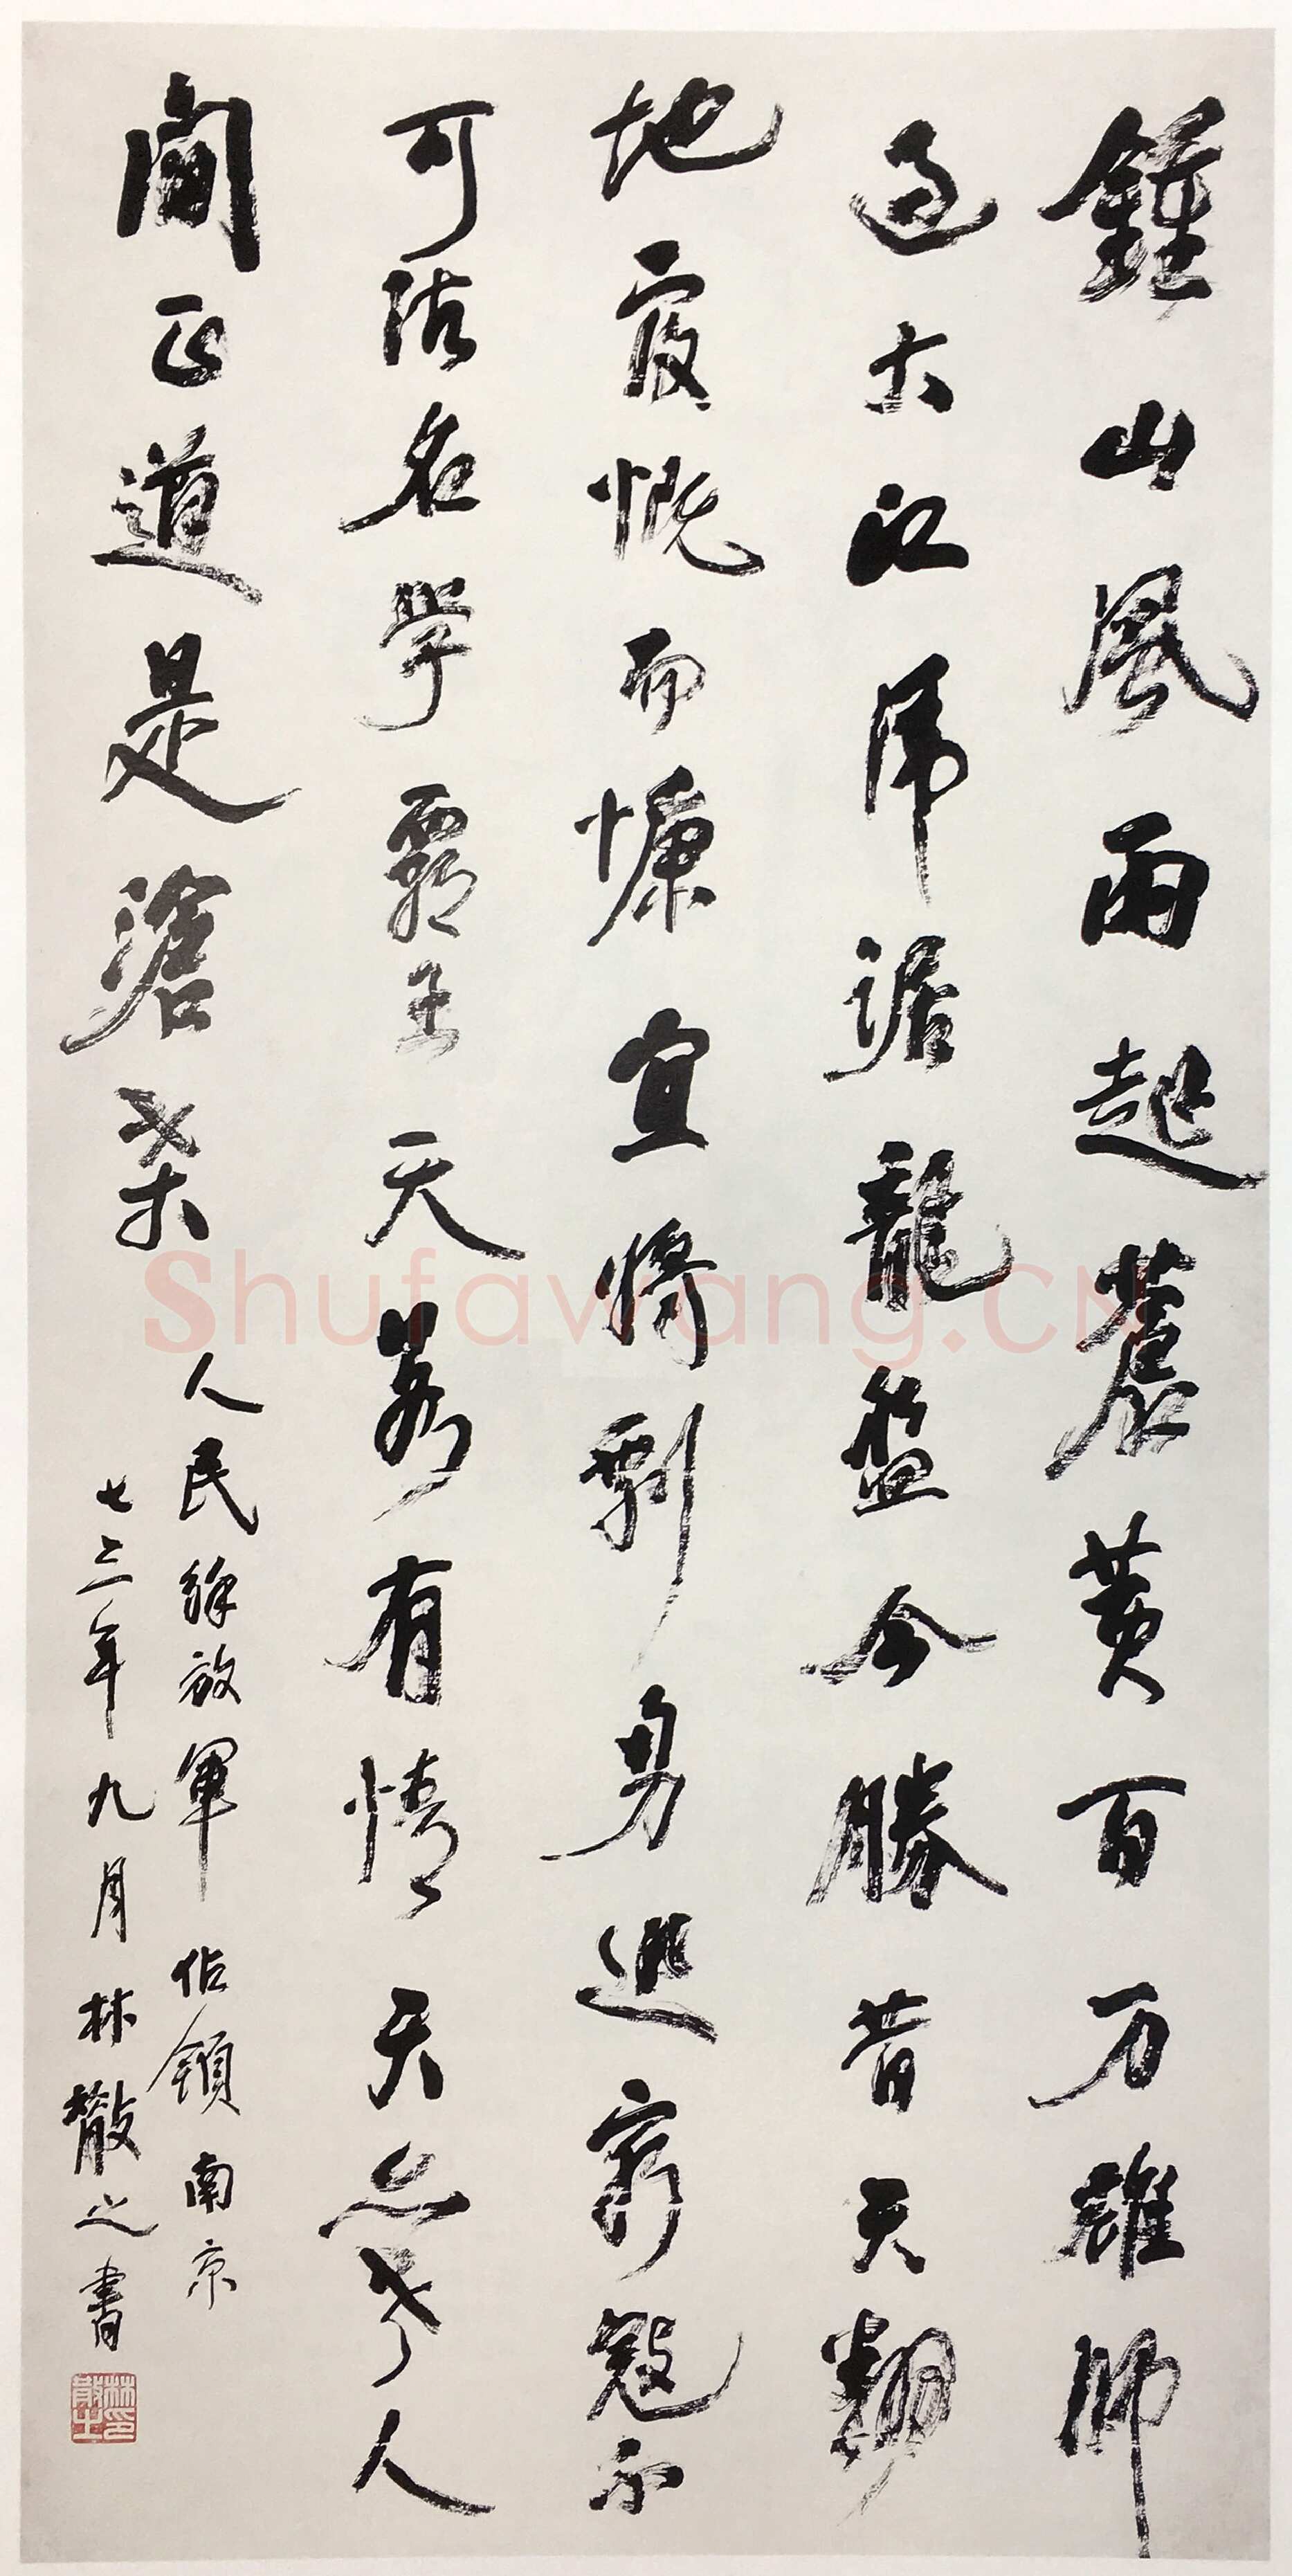 鍾山風雨起蒼黃百万雄師
過大江虎踞龍盤今勝昔天翻
地覆慨而慷宜將剩勇追窮寇不
可沽名學霸王天若有情天亦老人
間正道是滄桑
人民解放軍佔領南京
七三年九月林散之書
林散之印
Shufawang.CN